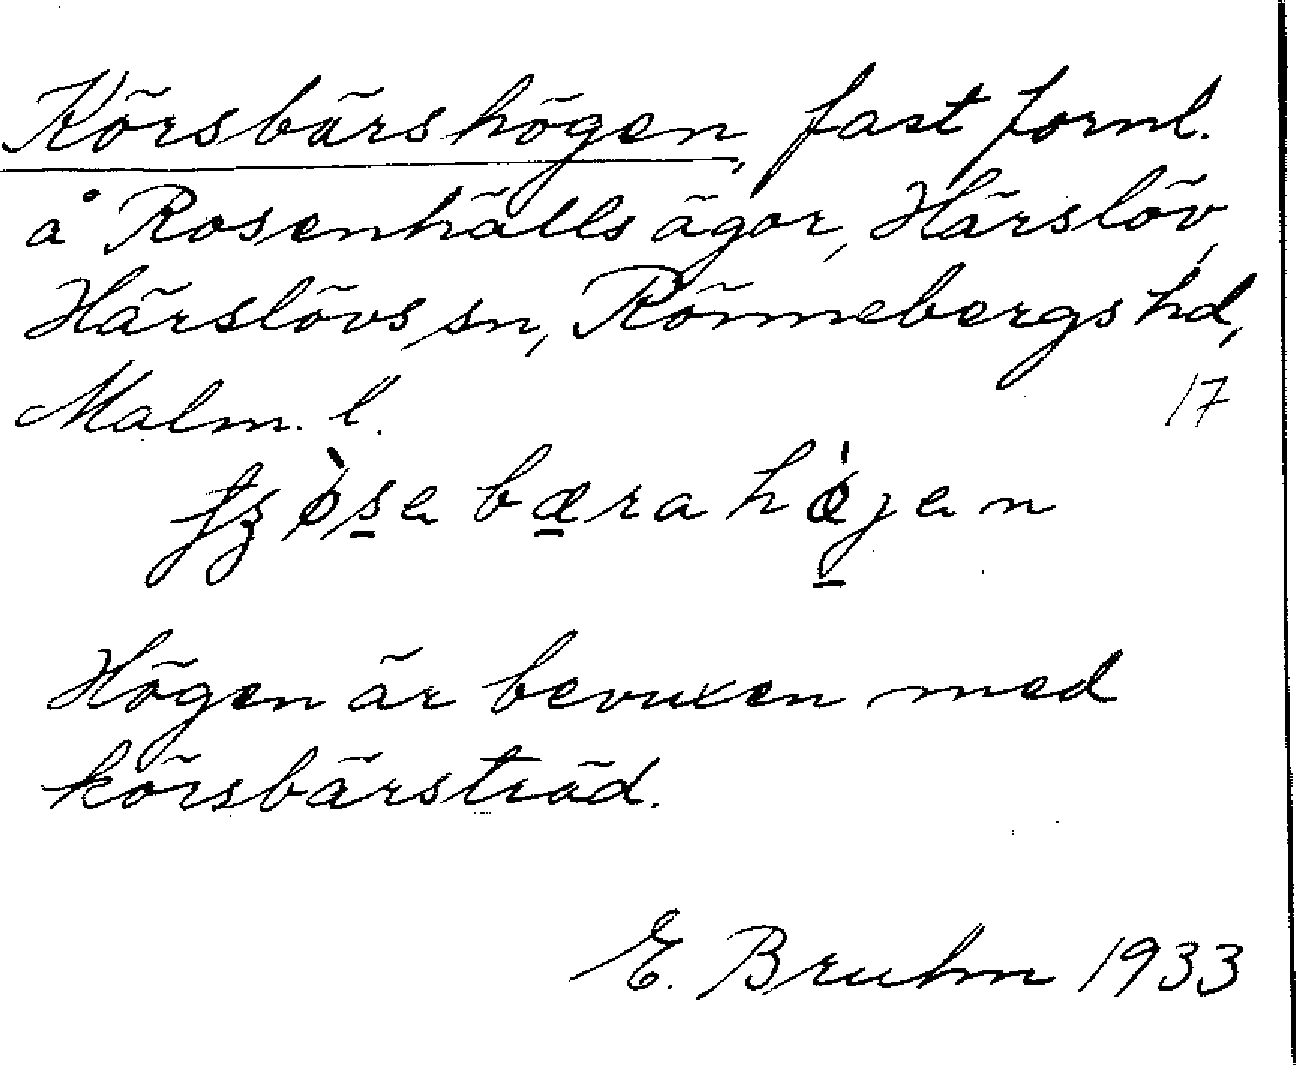 Körsbärshögen, fast fornl.
å Rosenhälls ägor, Härslöv,
Härslövs sn, Rönnebergs hd,
Malm. l.
17
Högen är bevuxen med
körsbärsträd.
E. Bruhn 1933